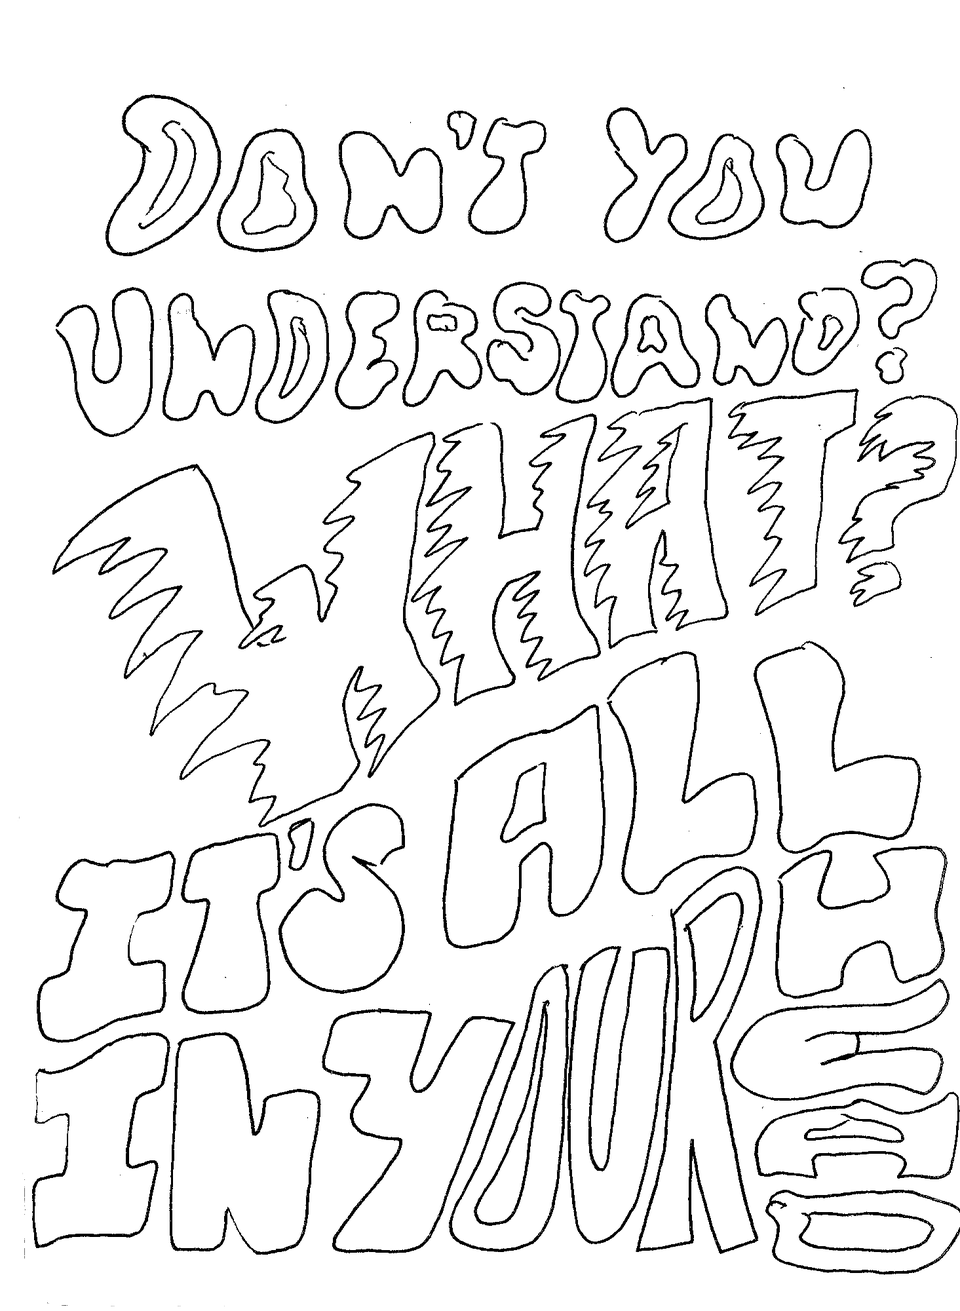 DON'T YOU
UNDERSTAND?
WHAT?
IT'S ALL
IN YOUR HEAD